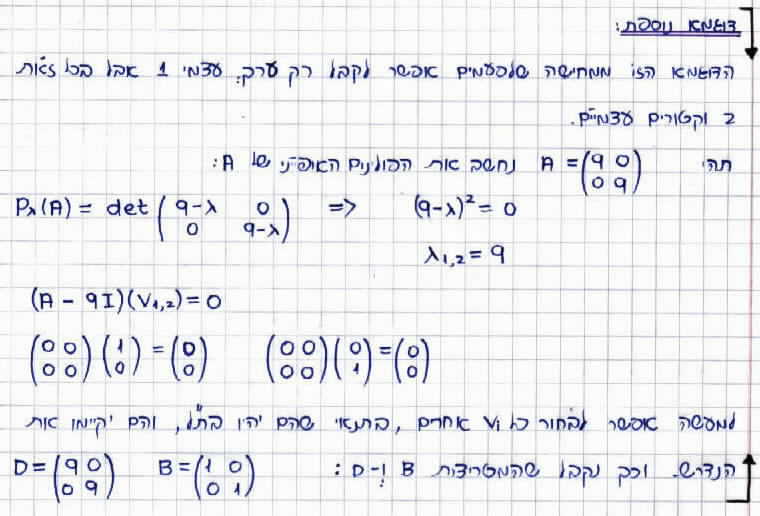 דוגמא נוספת:
הדוגמא הזו ממחישה שלפעמים אפשר לקבל רק ערך עצמי 1 אבל בכל זאת
2 וקטורים עצמיים.
תהי A = (9 0 / 0 9) נחשב את הפולינים האופייני של A:
Pλ(A) = det (9-λ 0 / 0 9-λ) => (9-λ)² = 0
λ1,2 = 9
(A - 9I)(V1,2) = 0
(0 0 / 0 0)(1 / 0) = (0 / 0) (0 0 / 0 0)(0 / 1) = (0 / 0)
למעשה אפשר לבחור כל Vi אחרים, בתנאי שהם יהיו בת"ל, והם יקיימו את
הנדרש. וכך נקבל שהמטריצות B ו-D: B = (1 0 / 0 1) D = (9 0 / 0 9)